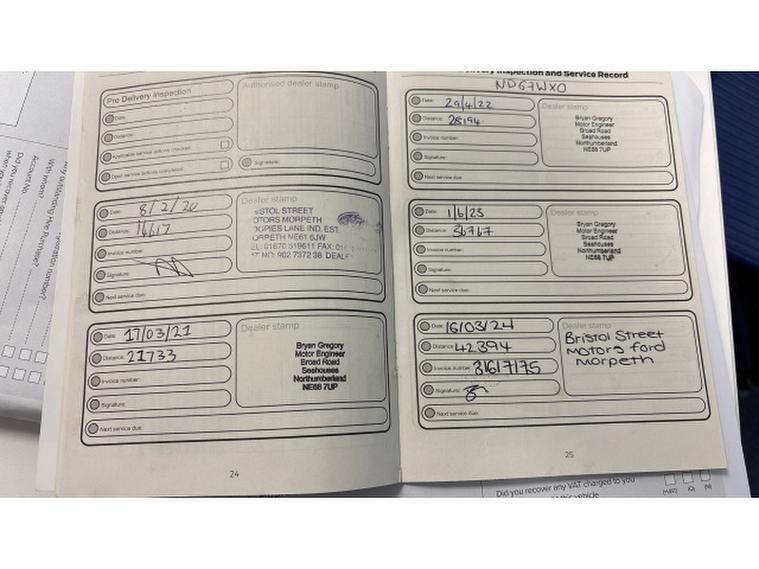 Pre Delivery Inspection
Authorised dealer stamp
Date:
Distance:
Applicable service actions checked:
Open service actions completed:
Signature:
Date: 8/2/20
Dealer stamp
Distance:
Invoice number:
Signature:
Next service due:
STOL STREET
TORS MORPETH
LANE IND. EST.
NE61 6JW
01670 519611 FAX:
NO: 902 7372 38 DEALE
Date: 17/03/21
Dealer stamp
Distance: 21733
Invoice number:
Signature:
Next service due:
Bryan Gregory
Motor Engineer
Broad Road
Seahouses
Northumberland
NE68 7UP
24
Inspection and Service Record
ND67WXO
Date: 29/4/22
Dealer stamp
Distance: 28194
Invoice number:
Signature:
Next service due:
Bryan Gregory
Motor Engineer
Broad Road
Seahouses
Northumberland
NE68 7UP
Date: 1/6/23
Dealer stamp
Distance: 36767
Invoice number:
Signature:
Next service due:
Bryan Gregory
Motor Engineer
Broad Road
Seahouses
Northumberland
NE68 7UP
Date: 16/03/24
Dealer stamp
Distance: 42394
Invoice number: 31617175
Signature:
Next service due:
Bristol Street
Motors ford
Morpeth
25
Did you recover any VAT charged to you
vehicle
With whom?
Account No.